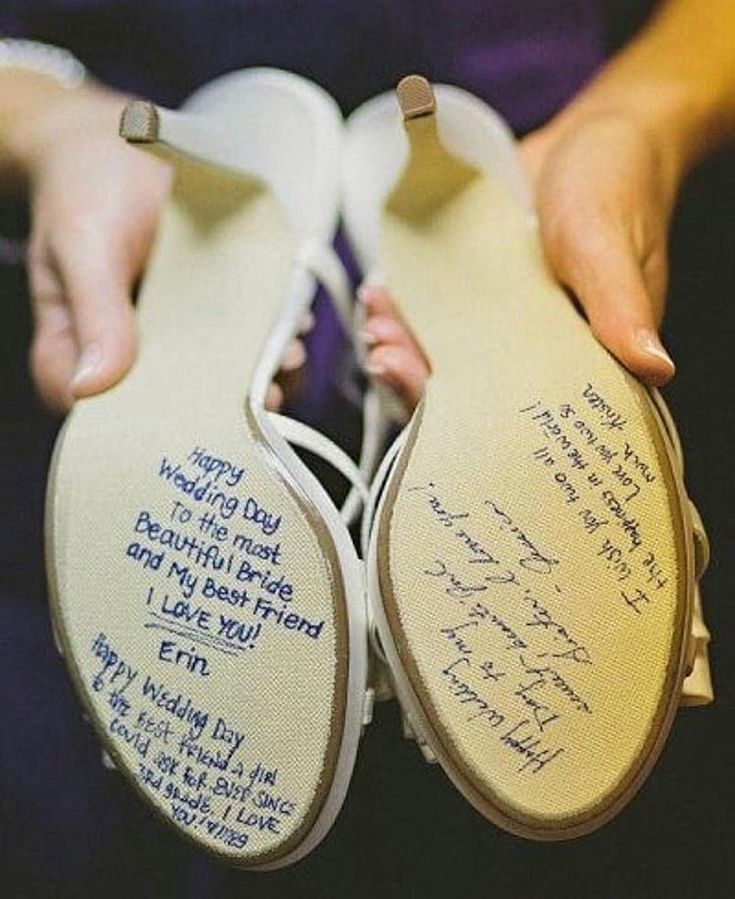 Happy
Wedding Day
To the most
Beautiful Bride
and My Best Friend
I LOVE YOU!
Erin
Happy Wedding Day
to the best friend a girl
could ask for ever since
3rd grade I LOVE
YOU!
I wish you two all
the happiness in the world!
Love you two so
much Kristen
Happy Wedding
Day to my
I love you!